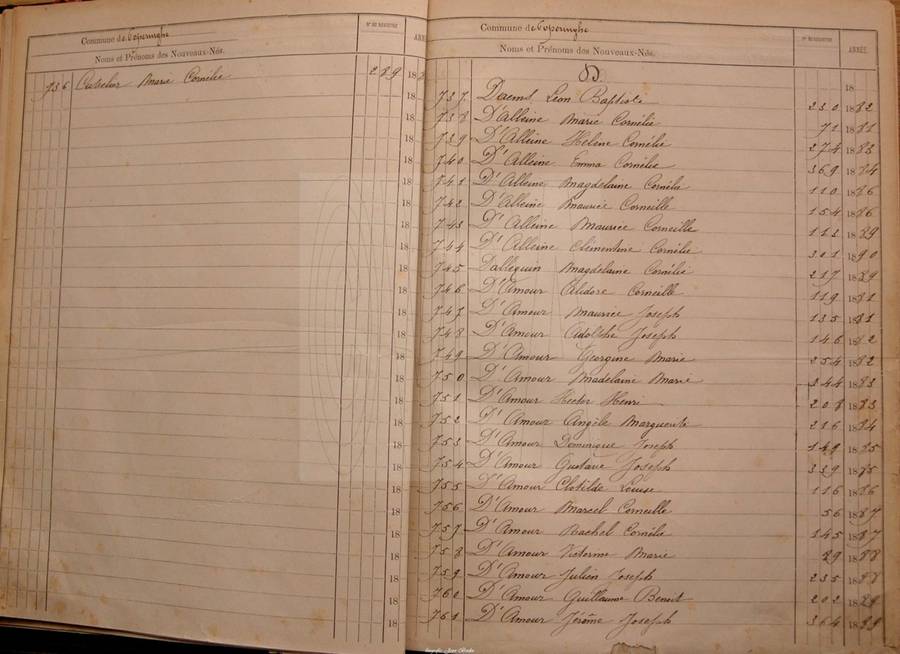 Commune de Poperinghe
Nº DU REGISTRE
Noms et Prénoms des Nouveaux-Nés.
736 Marie Cornélie 289 18
Commune de Poperinghe
Nº DU REGISTRE
ANNÉE
Noms et Prénoms des Nouveaux-Nés.
D
18
737 Daems Léon Baptiste 230 1882
738 D'Alleine Marie Cornélie 71 1881
739 D'Alleine Hélène Cornélie 274 1883
740 D'Alleine Emma Cornélie 369 1884
741 D'Alleine Magdelaine Cornélie 110 1886
742 D'Alleine Maurice Corneille 154 1886
743 D'Alleine Maurice Corneille 1889
744 D'Alleine Clémentine Cornélie 301 1890
745 Dallequin Magdelaine Cornélie 217 1889
746 D'Amour Alidore Corneille 119 1881
747 D'Amour Maurice Joseph 135 1881
748 D'Amour Adolphe Joseph 146 1882
749 D'Amour Georgine Marie 254 1882
750 D'Amour Madelaine Marie 344 1883
751 D'Amour Hector Henri 208 1883
752 D'Amour Angèle Marguerite 216 1884
753 D'Amour Dominique Joseph 149 1885
754 D'Amour Gustave Joseph 339 1885
755 D'Amour Clotilde Louise 116 1886
756 D'Amour Marcel Corneille 56 1887
757 D'Amour Rachel Cornélie 145 1887
758 D'Amour Victorine Marie 29 1888
759 D'Amour Julien Joseph 235 1888
760 D'Amour Guillaume Benoit 202 1889
761 D'Amour Jérôme Joseph 364 1889